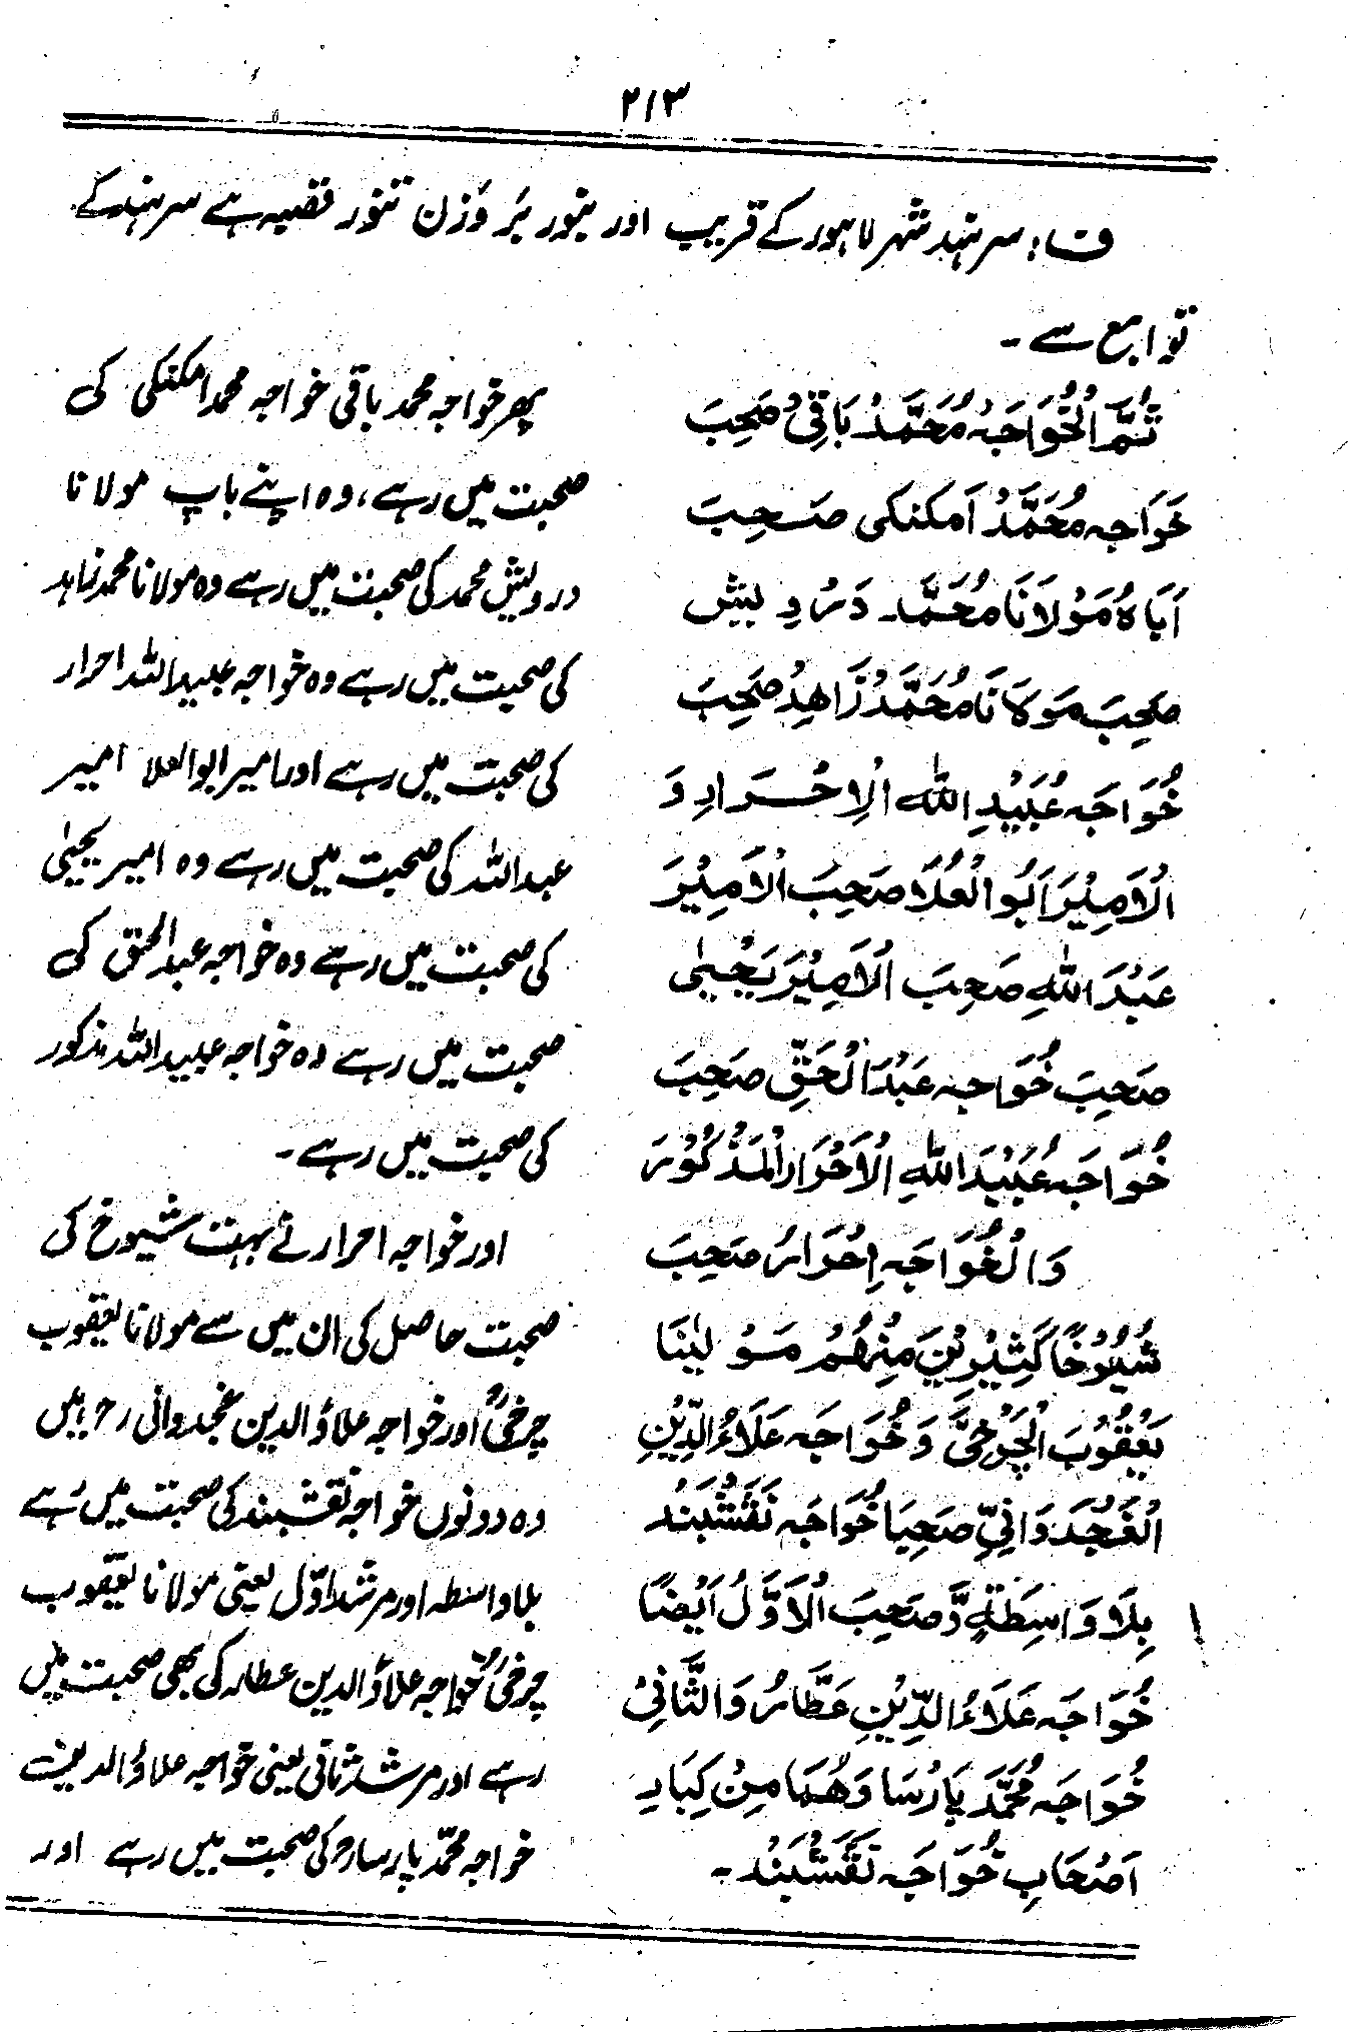 ۲۱۳
ف: سرہند شہر لاہور کے قریب اور بنور بَر وَزن تنور قصبہ ہے سرہند کے
توابع سے۔
ثُمَّ الْخُوَاجَہْ مُحَمَّدْ بَاقِیْ صَحِبَ
خَوَاجہ مُحَمَّدْ اَمکنکی صَحِبَ
اَبَاہُ مَوْلَانَا مُحَمَّد دَرْوِیش
صَحِبَ مَوْلَانَا مُحَمَّدْ زَاھِدْ صَحِبَ
خُوَاجَہ عُبَیْدِ اللّٰہِ الْاِحْرَارِ وَ
الْاَمِیْرَ اَبُو الْعُلَا صَحِبَ الْاَمِیْرَ
عَبْدَ اللّٰہِ صَحِبَ الْاَمِیْرَ یَحْییٰ
صَحِبَ خُوَاجہ عَبْدَ الْحَقِّ صَحِبَ
خُوَاجَہ عُبَیْدَ اللّٰہِ الْاَحْرَارِ الْمَذْکُوْرَ
وَالْخُوَاجَہ اِحْرَارُ صَحِبَ
شُیُوْخًا کَثِیْرِیْنَ مِنْھُمْ مَوْلٰینَا
یَعْقُوْبَ الْچَرْخِیَّ وَخُوَاجَہ عَلَاءُ الدِّیْنِ
الْغُجْدَوَانِیِّ صَحِبَا خُوَاجَہ نَقْشْبَنْد
بِلَا وَاسِطَۃٍ وَّصَحِبَ الْاَوَّلُ اَیْضًا
خُوَاجَہ عَلَاءُ الدِّیْنِ عَطَّارُ وَالثَّانِیْ
خُوَاجَہ مُحَمَّدَ پَارْسَا وَھُمَا مِنْ کِبَارِ
اَصْحَابِ خُوَاجَہ نَقْشْبَنْد۔
پھر خواجہ محمد باقی خواجہ محمد امکنکی کی
صحبت میں رہے، وہ اپنے باپ مولانا
درویش محمد کی صحبت میں رہے وہ مولانا محمد زاہد
کی صحبت میں رہے وہ خواجہ عبید اللہ احرار
کی صحبت میں رہے اور امیر ابو العلا امیر
عبد اللہ کی صحبت میں رہے وہ امیر یحییٰ
کی صحبت میں رہے وہ خواجہ عبد الحق کی
صحبت میں رہے وہ خواجہ عبید اللہ مذکور
کی صحبت میں رہے۔
اور خواجہ احرار نے بہت شیوخ کی
صحبت حاصل کی ان میں سے مولانا یعقوب
چرخیؒ اور خواجہ علاؤ الدین غجدوانی رح ہیں
وہ دونوں خواجہ نقشبند کی صحبت میں رہے
بلا واسطہ اور مرشد اوّل یعنی مولانا یعقوب
چرخیؒ خواجہ علاؤ الدین عطار کی بھی صحبت میں
رہے اور مرشد ثانی یعنی خواجہ علاؤ الدین
خواجہ محمّد پارسا رح کی صحبت میں رہے اور